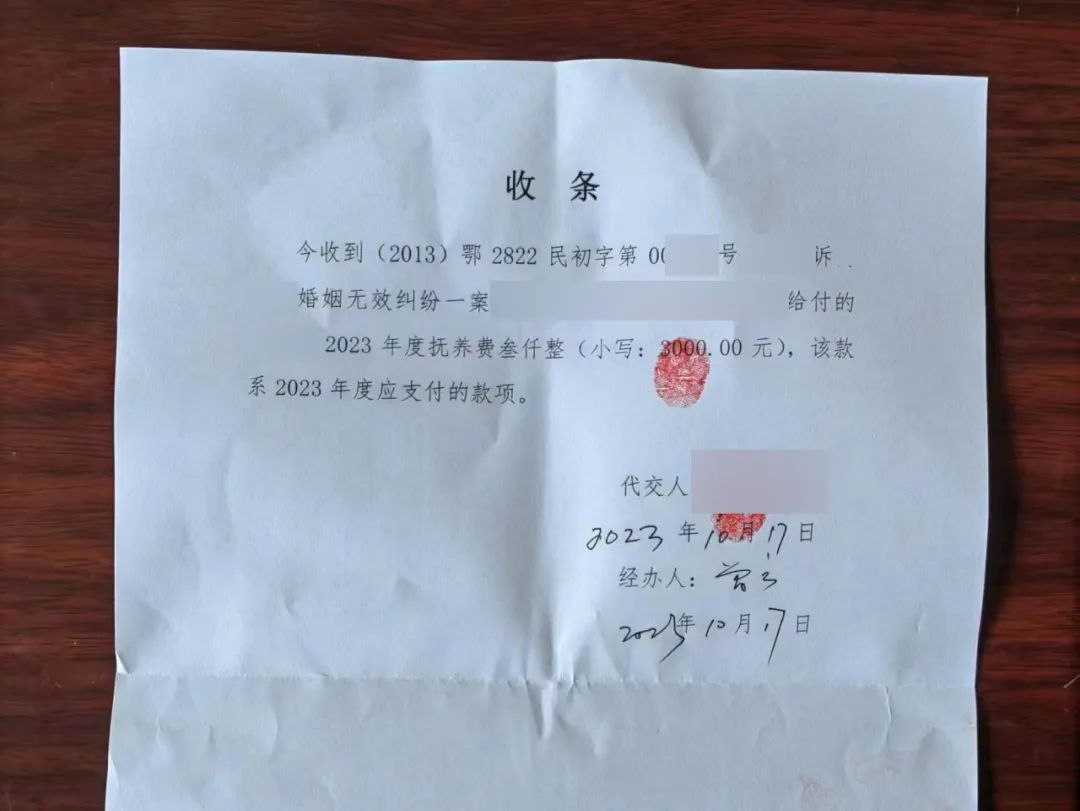 收 条
今收到（2013）鄂 2822 民初字第 00 号 诉
婚姻无效纠纷一案 给付的
2023 年度抚养费叁仟整（小写：3000.00 元），该款
系 2023 年度应支付的款项。
代交人
2023 年 10 月 17 日
经办人：曾
年 10 月 17 日